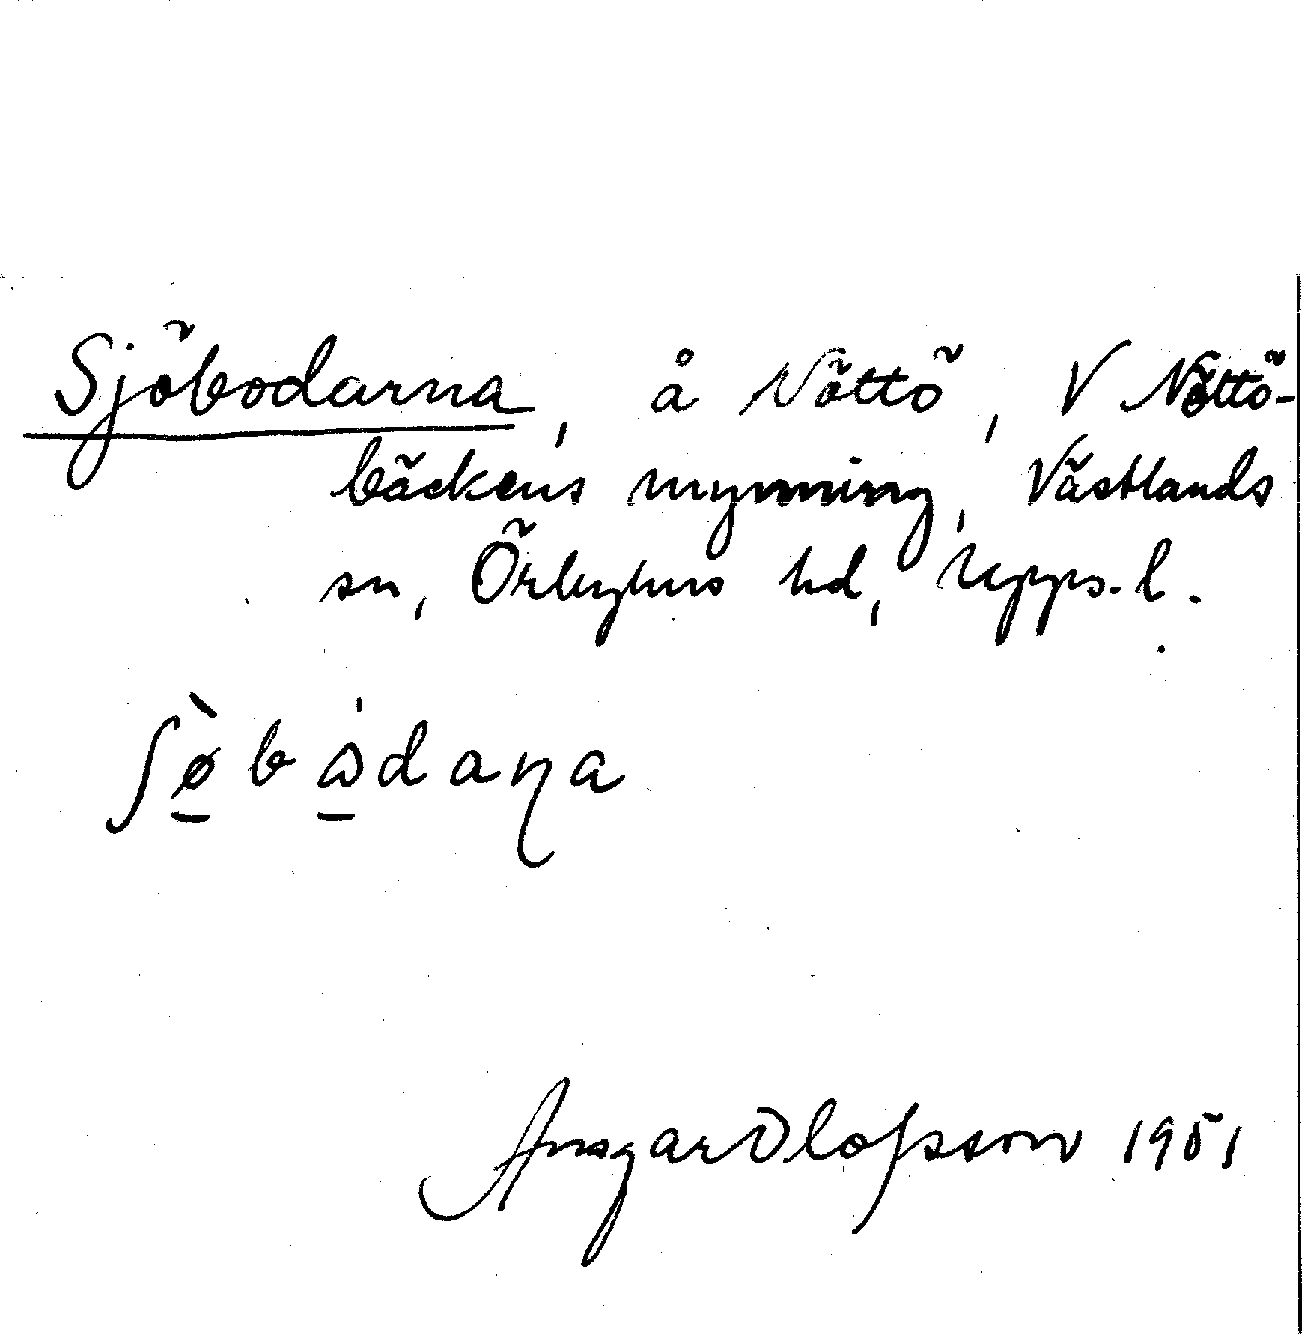 Sjöbodarna, å Nöttö, V Nöttö-
bäckens mynning, Västlands
sn, Örbyhus hd, Upps. l.
Ansgar Olofsson 1951